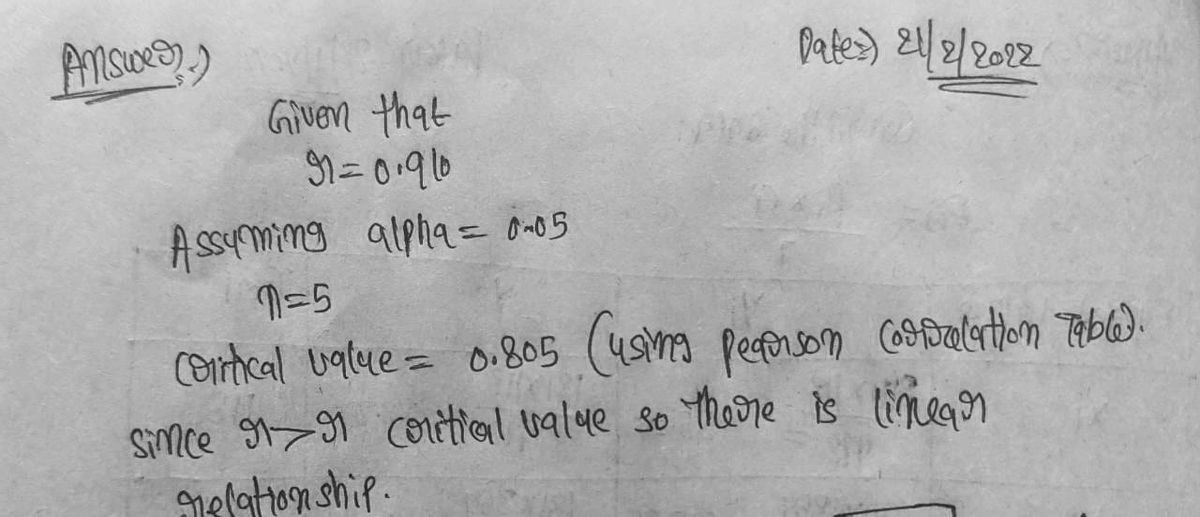 Answer:)
Date:) 21/2/2022
Given that
r=0.910
Assuming alpha= 0.05
n=5
critical value= 0.805 (using pearson correlation Table).
since r>r critical value so there is linear
relationship.